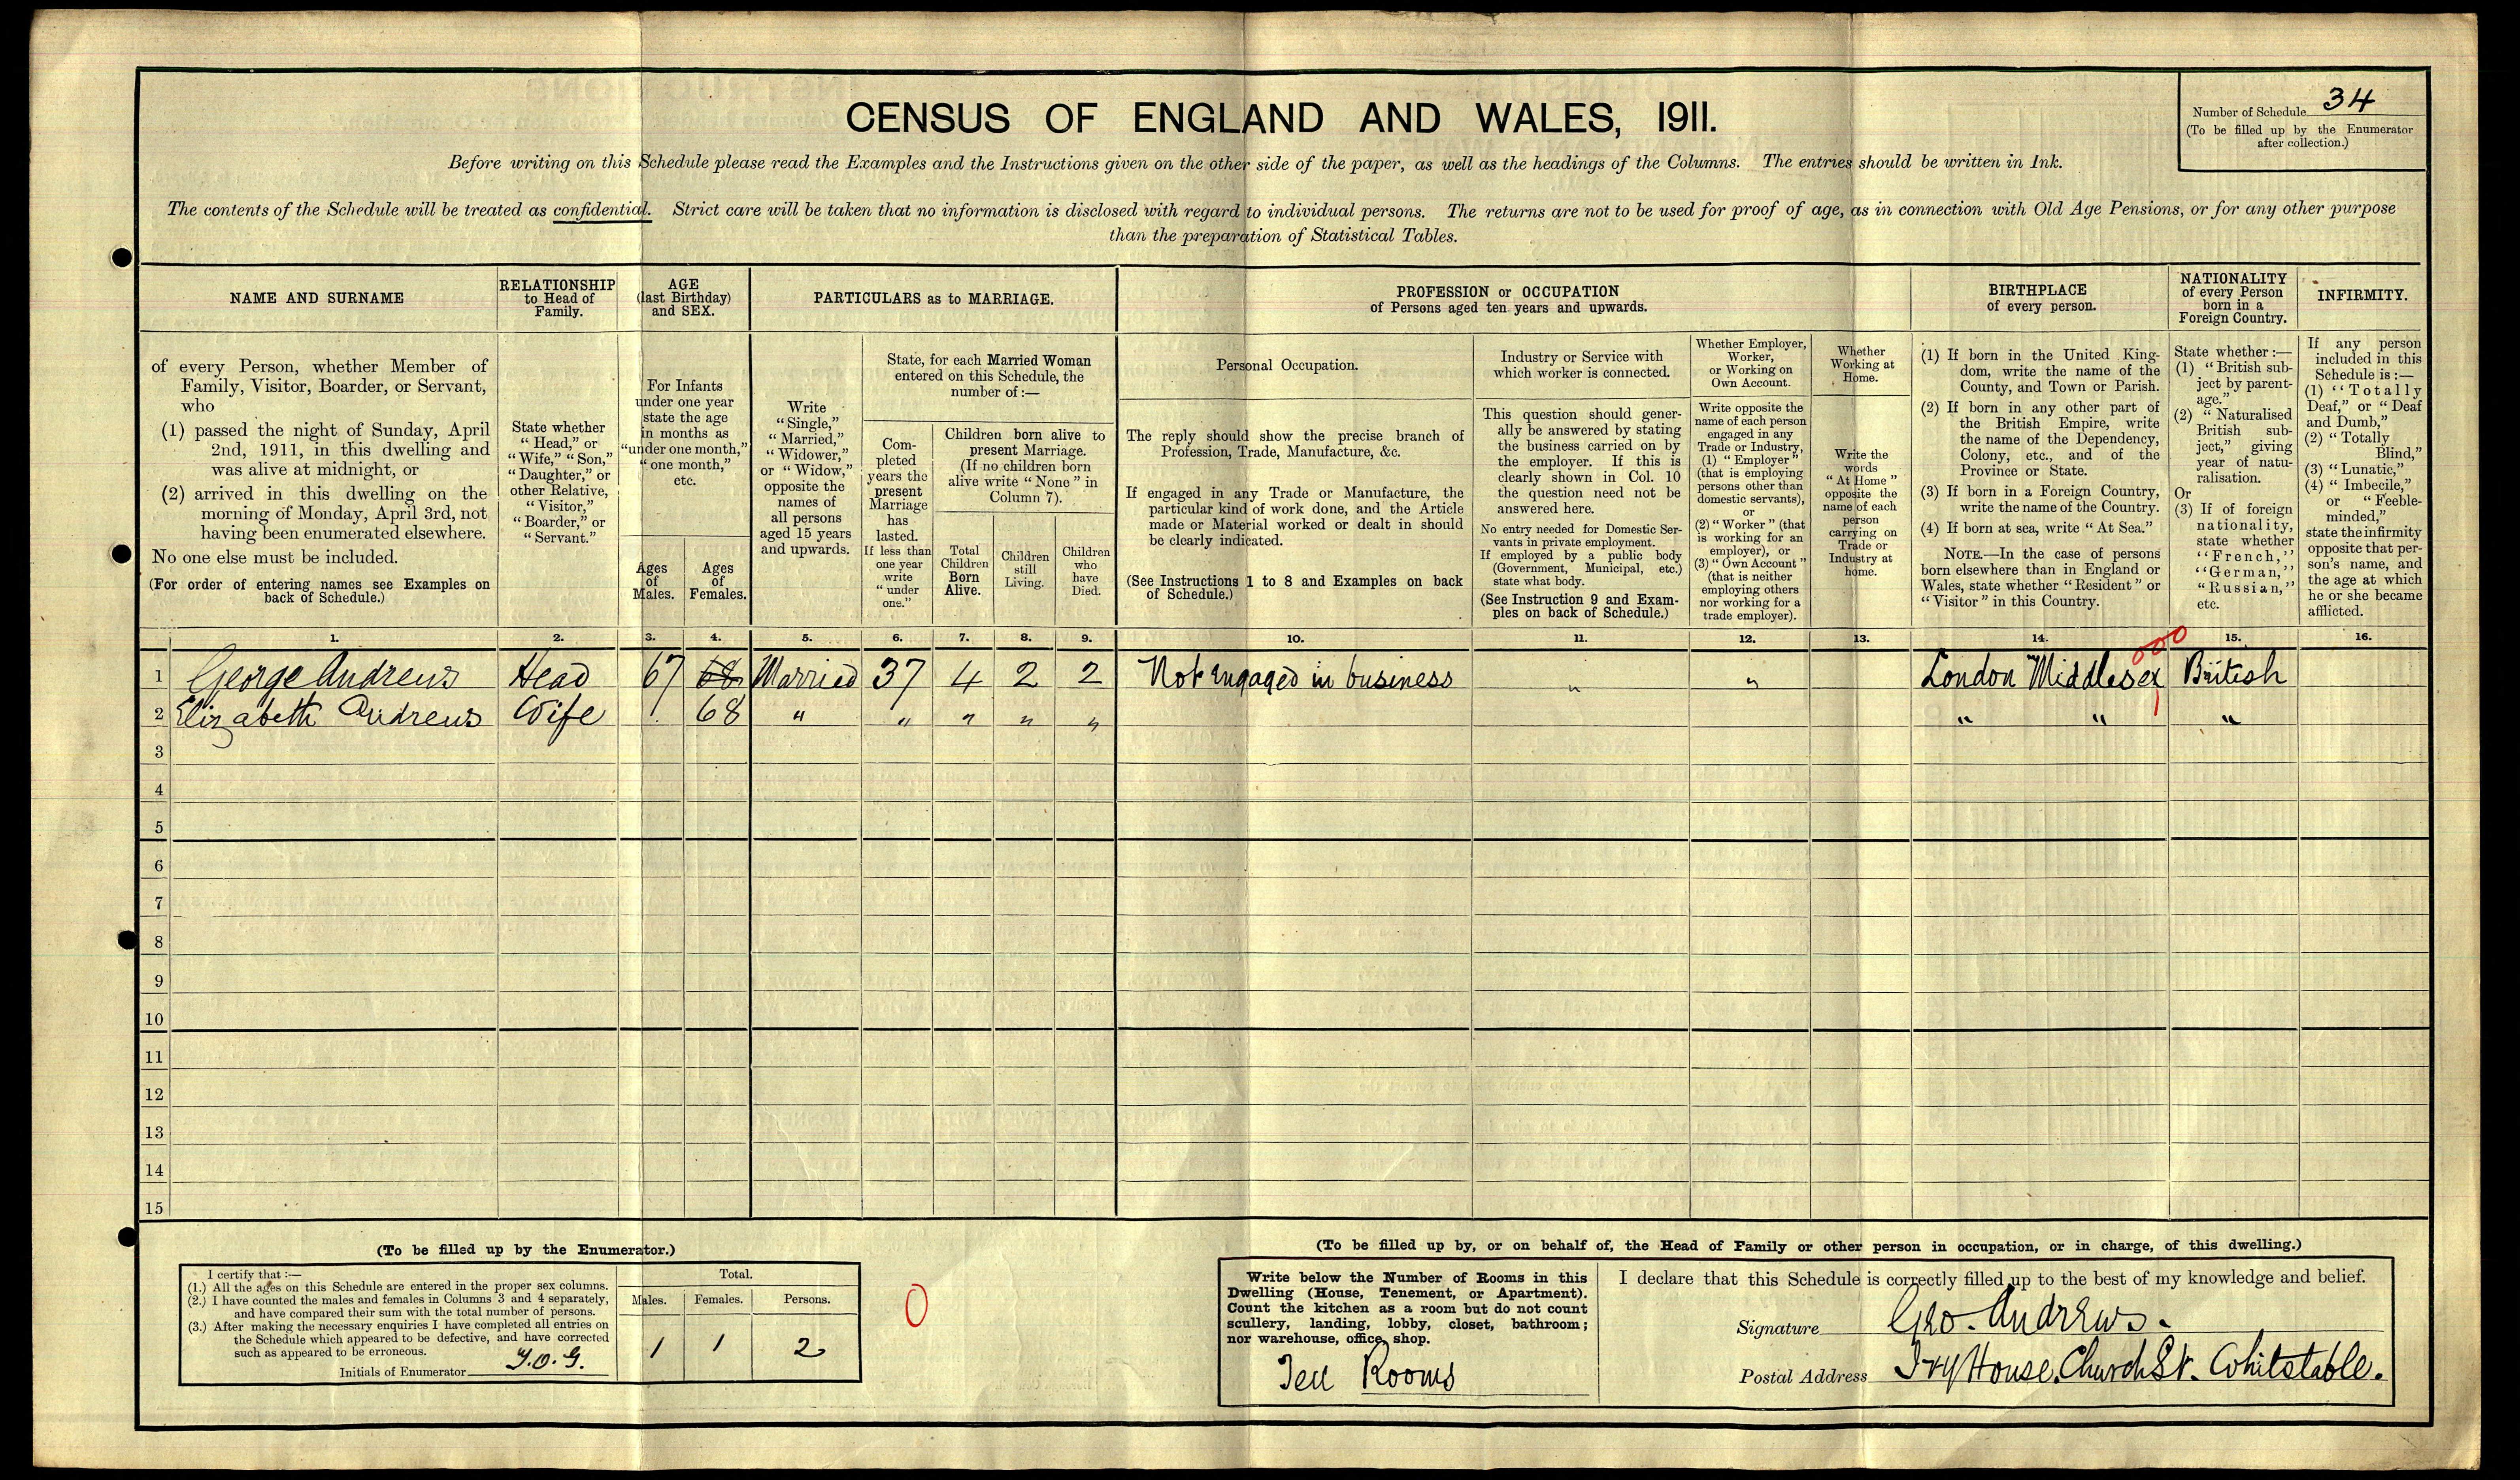 CENSUS OF ENGLAND AND WALES, 1911.
Number of Schedule 34
(To be filled up by the Enumerator
after collection.)
Before writing on this Schedule please read the Examples and the Instructions given on the other side of the paper, as well as the headings of the Columns. The entries should be written in Ink.
The contents of the Schedule will be treated as confidential. Strict care will be taken that no information is disclosed with regard to individual persons. The returns are not to be used for proof of age, as in connection with Old Age Pensions, or for any other purpose
than the preparation of Statistical Tables.
NAME AND SURNAME
of every Person, whether Member of
Family, Visitor, Boarder, or Servant,
who
(1) passed the night of Sunday, April
2nd, 1911, in this dwelling and
was alive at midnight, or
(2) arrived in this dwelling on the
morning of Monday, April 3rd, not
having been enumerated elsewhere.
No one else must be included.
(For order of entering names see Examples on
back of Schedule.)
RELATIONSHIP
to Head of
Family.
State whether
"Head," or
"Wife," "Son,"
"Daughter," or
other Relative,
"Visitor,"
"Boarder," or
"Servant."
AGE
(last Birthday)
and SEX.
For Infants
under one year
state the age
in months as
"under one month,"
"one month,"
etc.
Ages
of
Males.
Ages
of
Females.
PARTICULARS as to MARRIAGE.
Write
"Single,"
"Married,"
"Widower,"
or "Widow,"
opposite the
names of
all persons
aged 15 years
and upwards.
State, for each Married Woman
entered on this Schedule, the
number of:—
Com-
pleted
years the
present
Marriage
has
lasted.
If less than
one year
write
"under
one."
Children born alive to
present Marriage.
(If no children born
alive write "None" in
Column 7).
Total
Children
Born
Alive.
Children
still
Living.
Children
who
have
Died.
PROFESSION or OCCUPATION
of Persons aged ten years and upwards.
Personal Occupation.
The reply should show the precise branch of
Profession, Trade, Manufacture, &c.
If engaged in any Trade or Manufacture, the
particular kind of work done, and the Article
made or Material worked or dealt in should
be clearly indicated.
(See Instructions 1 to 8 and Examples on back
of Schedule.)
Industry or Service with
which worker is connected.
This question should gener-
ally be answered by stating
the business carried on by
the employer. If this is
clearly shown in Col. 10
the question need not be
answered here.
No entry needed for Domestic Ser-
vants in private employment.
If employed by a public body
(Government, Municipal, etc.)
state what body.
(See Instruction 9 and Exam-
ples on back of Schedule.)
Whether Employer,
Worker,
or Working on
Own Account.
Write opposite the
name of each person
engaged in any
Trade or Industry,
(1) "Employer"
(that is employing
persons other than
domestic servants),
or
(2) "Worker" (that
is working for an
employer), or
(3) "Own Account"
(that is neither
employing others
nor working for a
trade employer).
Whether
Working at
Home.
Write the
words
"At Home"
opposite the
name of each
person
carrying on
Trade or
Industry at
home.
BIRTHPLACE
of every person.
(1) If born in the United King-
dom, write the name of the
County, and Town or Parish.
(2) If born in any other part of
the British Empire, write
the name of the Dependency,
Colony, etc., and of the
Province or State.
(3) If born in a Foreign Country,
write the name of the Country.
(4) If born at sea, write "At Sea."
NOTE.—In the case of persons
born elsewhere than in England or
Wales, state whether "Resident" or
"Visitor" in this Country.
NATIONALITY
of every Person
born in a
Foreign Country.
State whether:—
(1) "British sub-
ject by parent-
age."
(2) "Naturalised
British sub-
ject," giving
year of natu-
ralisation.
Or
(3) If of foreign
nationality,
state whether
"French,"
"German,"
"Russian,"
etc.
INFIRMITY.
If any person
included in this
Schedule is:—
(1) "Totally
Deaf," or "Deaf
and Dumb,"
(2) "Totally
Blind,"
(3) "Lunatic,"
(4) "Imbecile,"
or "Feeble-
minded,"
state the infirmity
opposite that per-
son's name, and
the age at which
he or she became
afflicted.
1. 2. 3. 4. 5. 6. 7. 8. 9. 10. 11. 12. 13. 14. 15. 16.
000
1 George Andrews Head 67 68 Married 37 4 2 2 Not Engaged in business " " London Middlesex British
2 Elizabeth Andrews Wife 68 " " " " " " " "
1
3
4
5
6
7
8
9
10
11
12
13
14
15
(To be filled up by the Enumerator.)
I certify that:—
(1.) All the ages on this Schedule are entered in the proper sex columns.
(2.) I have counted the males and females in Columns 3 and 4 separately,
and have compared their sum with the total number of persons.
(3.) After making the necessary enquiries I have completed all entries on
the Schedule which appeared to be defective, and have corrected
such as appeared to be erroneous.
Initials of Enumerator Y.O.G.
Total.
Males. Females. Persons.
1 1 2
0
(To be filled up by, or on behalf of, the Head of Family or other person in occupation, or in charge, of this dwelling.)
Write below the Number of Rooms in this
Dwelling (House, Tenement, or Apartment).
Count the kitchen as a room but do not count
scullery, landing, lobby, closet, bathroom;
nor warehouse, office, shop.
Ten Rooms
I declare that this Schedule is correctly filled up to the best of my knowledge and belief.
Signature Geo. Andrews.
Postal Address Ivy House. Church St. Whitstable.